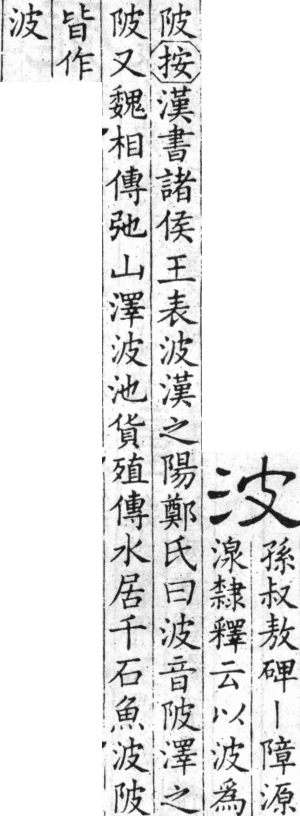 波孫叔敖碑丨障源
湶隸釋云以波為
陂按漢書諸侯王表波漢之陽鄭氏曰波音陂澤之
陂又魏相傳弛山澤波池貨殖傳水居千石魚波陂
皆作
波